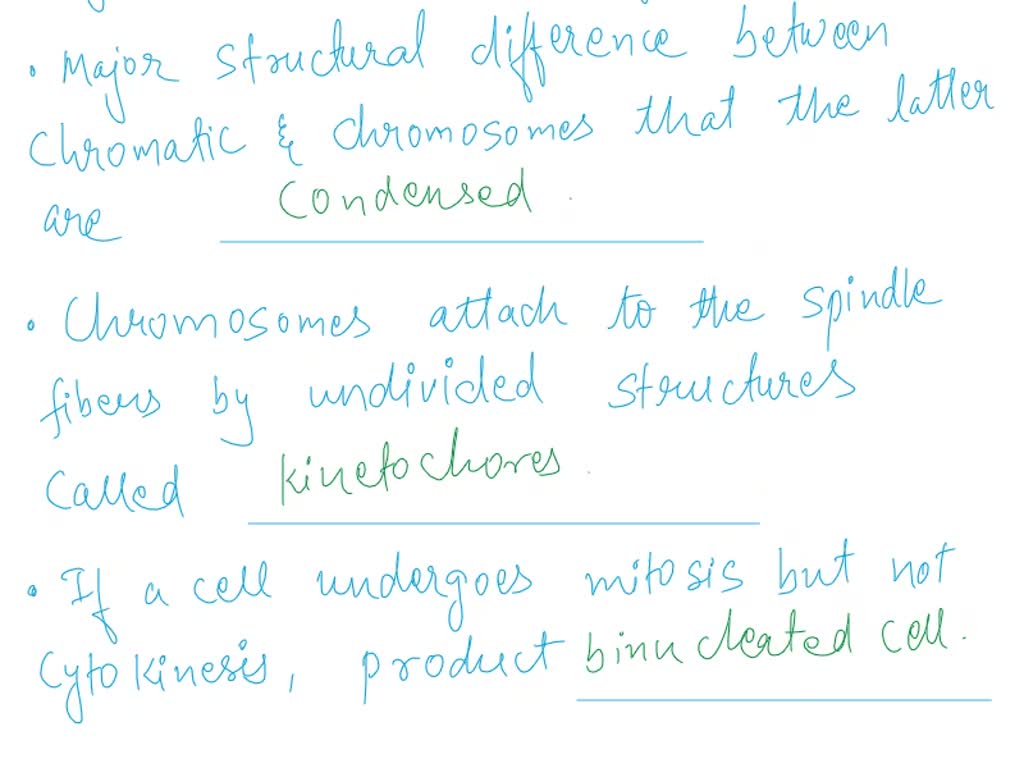 • Major structural difference between
Chromatic & chromosomes that the latter
are condensed.
• Chromosomes attach to the spindle
fibers by undivided structures
called kinetochores.
• If a cell undergoes mitosis but not
cytokinesis, product binucleated cell.